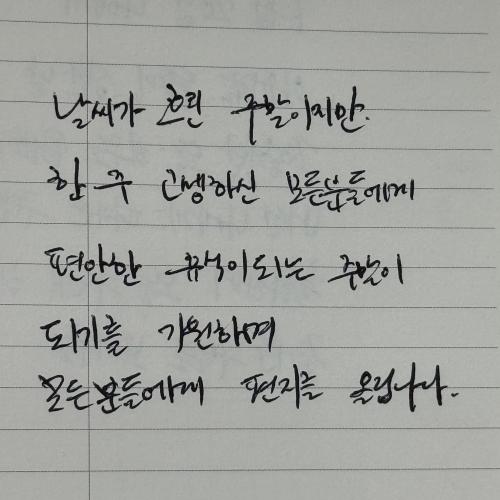 날씨가 흐린 주말이지만.
한 주 고생하신 모든분들에게
편안한 휴식이되는 주말이
되기를 기원하며
모든분들에게 편지를 올립니다.